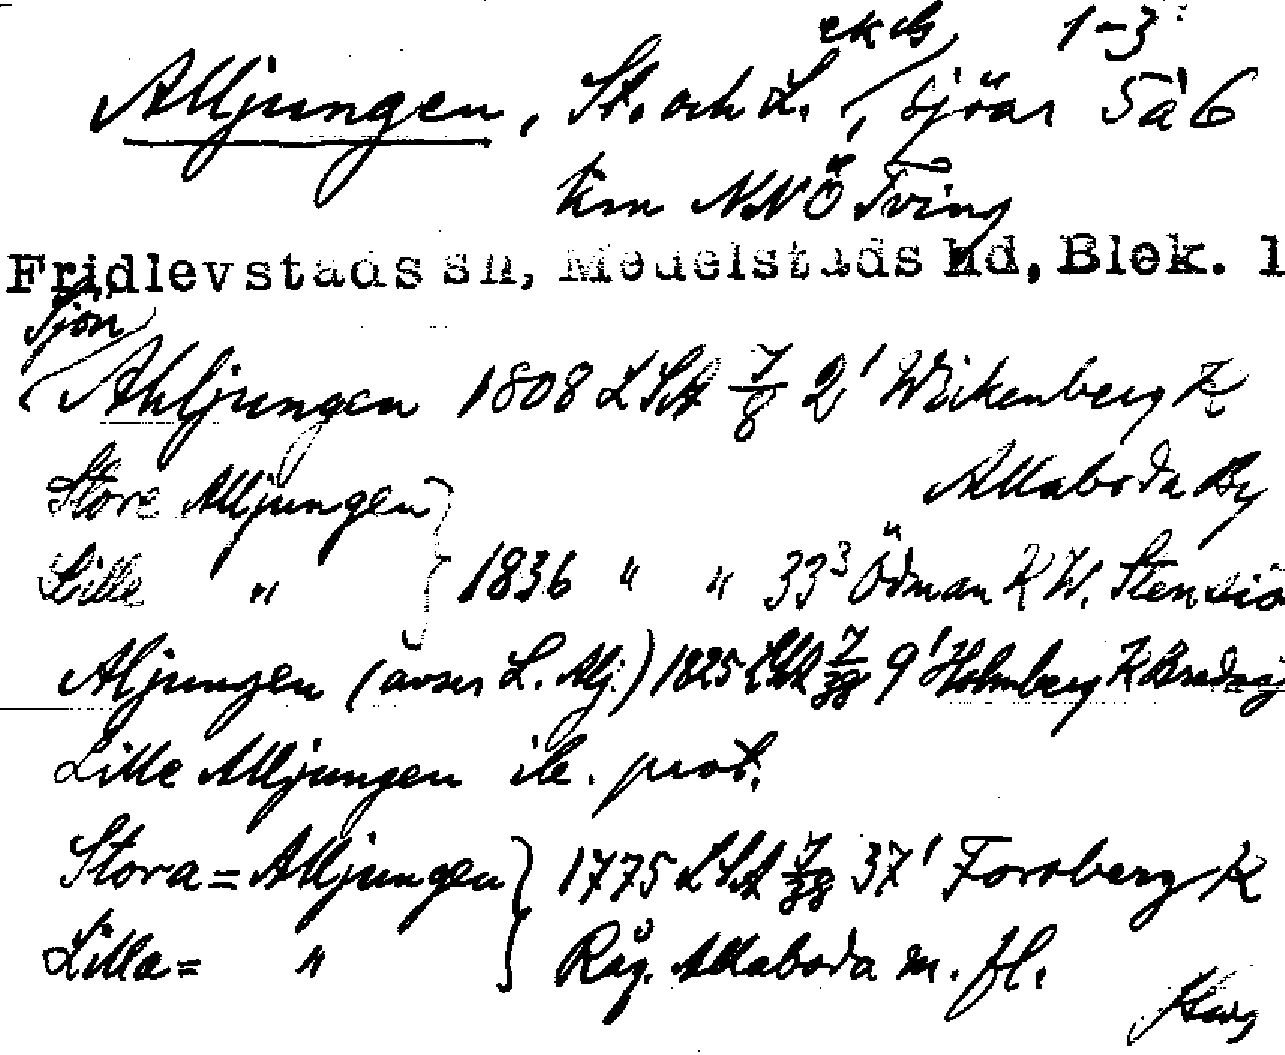 ek bl, 1-3
Alljungen, St. och L., sjöar 5 à 6
km NNÖ Tving
Fridlevstads sn, Medelstads hd, Blek. l
Sjön
Ahljungen 1808 LSA 7/8 2¹ Wirkenberg K
Allaboda By
Store Alljungen
Lille " 1836 " " 33³ Ödman K W. Stensjö
Aljungen (avser L. Alj.) 1825 LSA 7/38 9¹ Holmberg K
Lille Alljungen ib. prot.
Stora=Alljungen 1775 LSA 7/38 37¹ Forsberg K
Lilla= " Råg. Allaboda m. fl.